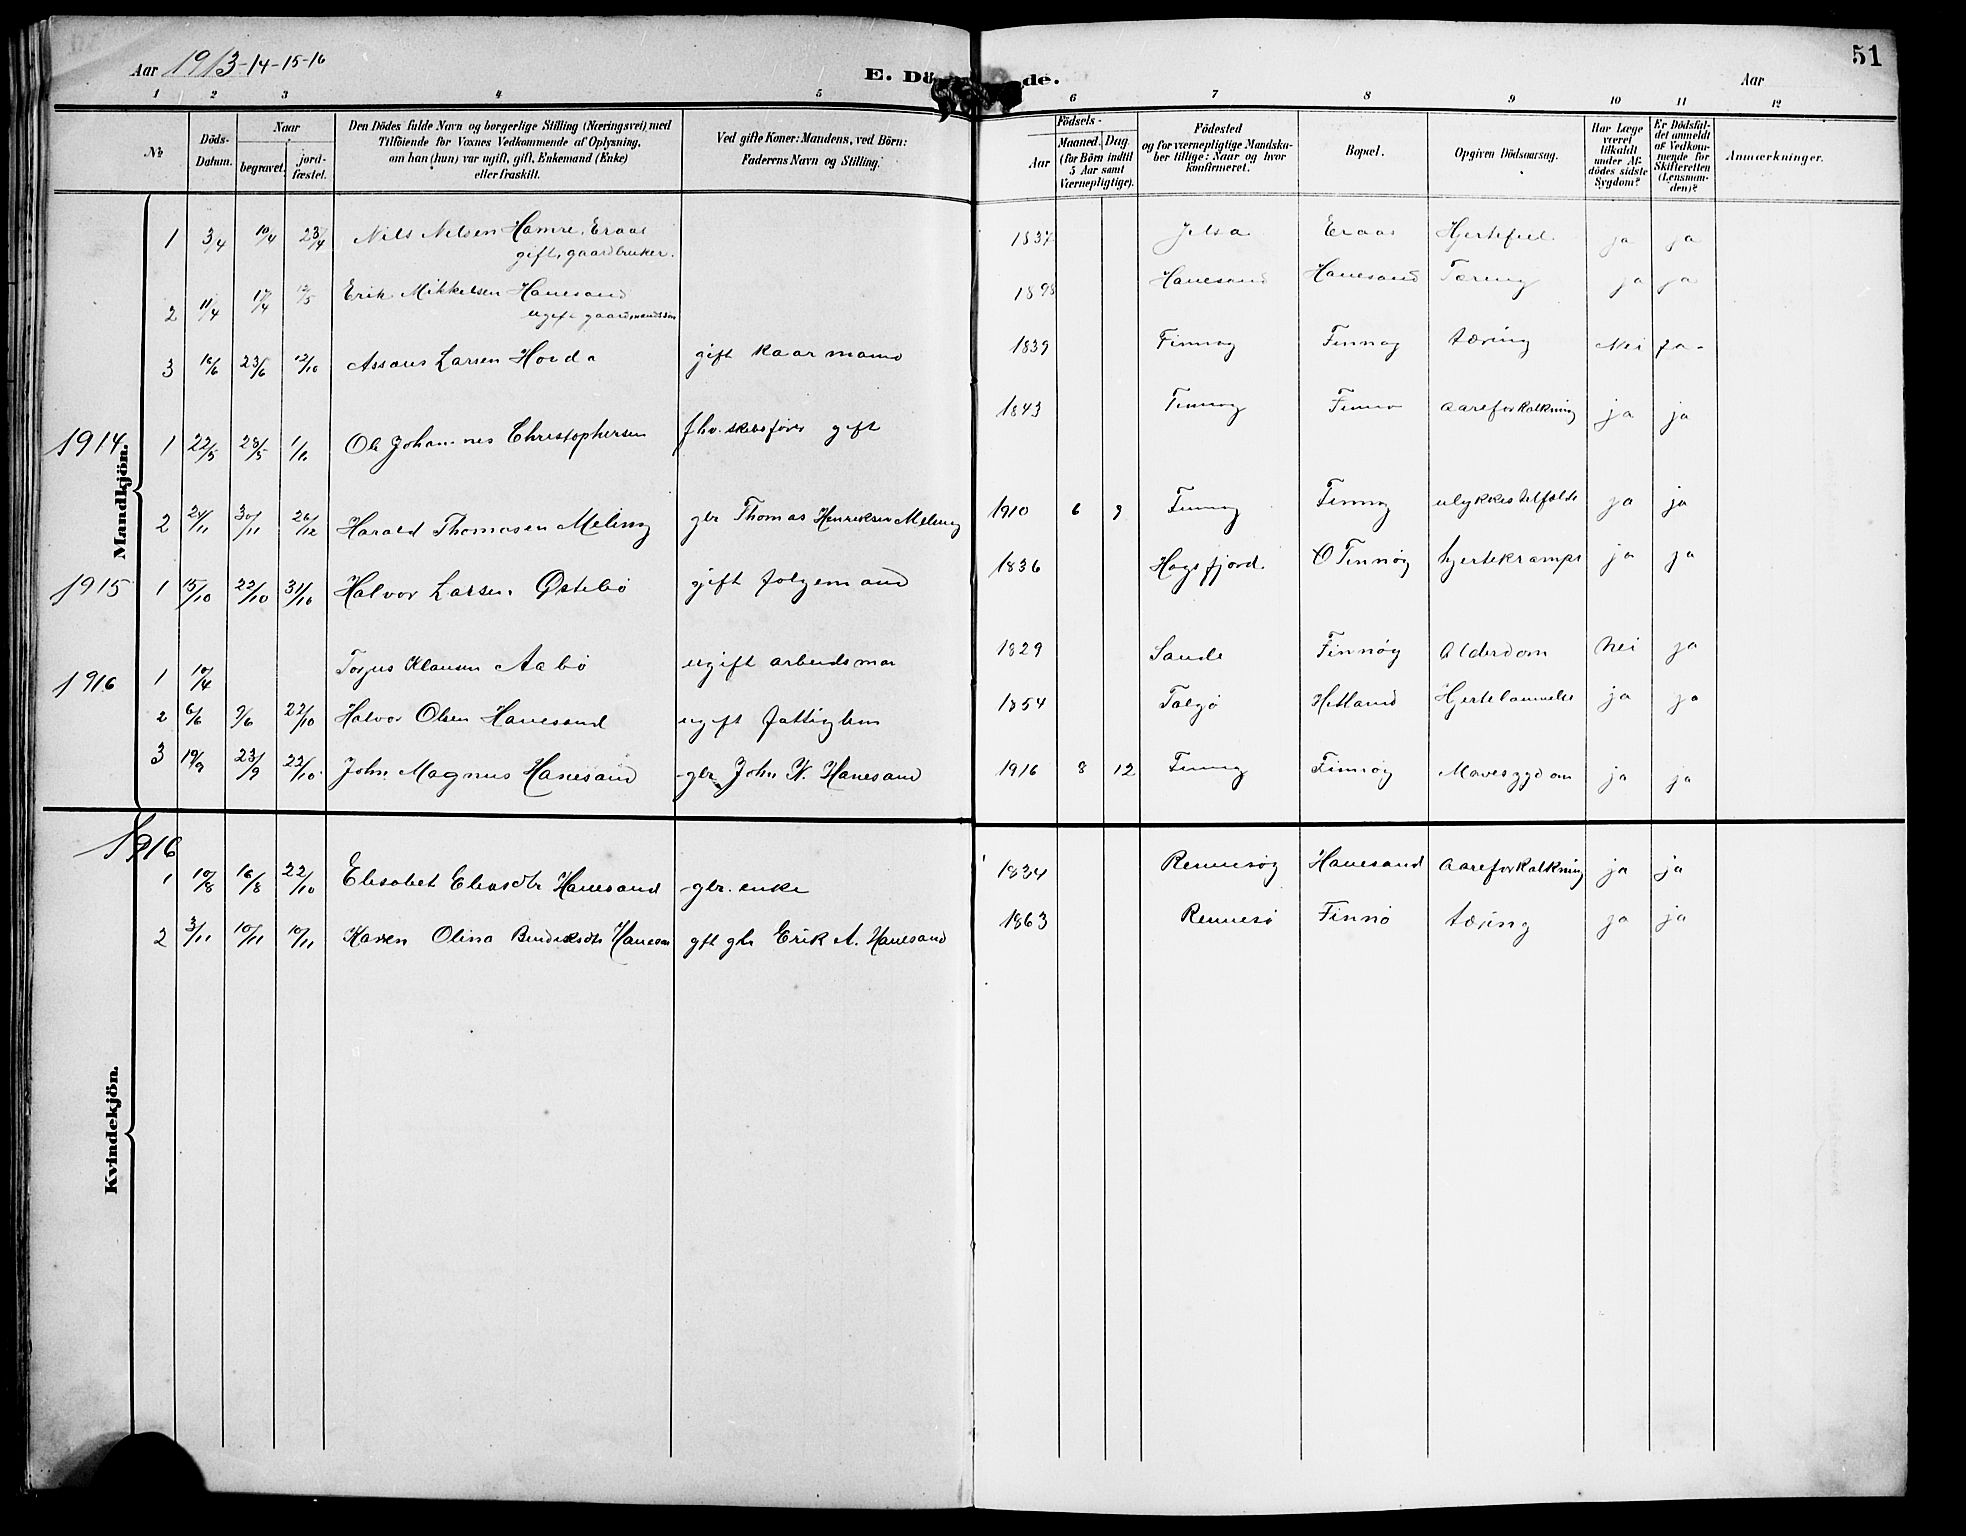 Aar 1913-14-15-16
E. Dö
de.
Aar
51
1 2 3 4 5 6 7 8 9 10 11 12
№
Döds-Datum.
Naar
begravet.
jord-fæstet.
Den Dödes fulde Navn og borgerlige Stilling (Næringsvei) med
Tilföiende for Voxnes Vedkommende af Oplysning,
om han (hun) var ugift, gift, Enkemand (Enke)
eller fraskilt.
Ved gifte Koner: Mandens, ved Börn:
Faderens Navn og Stilling.
Födsels-
Aar
Maaned. Dag.
(for Börn indtil
5 Aar samt
Værnepligtige).
Födested
og for værnepligtige Mandska-
ber tillige: Naar og hvor
konfirmeret.
Bopæl.
Opgiven Dödsaarsag.
Har Læge
været
tilkaldt
under Af-
dödes sidste
Sygdom?
Er Dödsfal-
det anmeldt
af Vedkom-
mende for
Skifteretten
(Lensman-
den)?
Anmærkninger.
Mandkjön.
1 3/4 10/4 23/4 Nils Nilsen Hamre, Eraas 1837 Jelsa Eraas Hjertefeil ja ja
gift, gaardbruker.
2 11/4 17/4 12/5 Erik Mikkelsen Hanesand 1898 Hanesand Hanesand Tæring ja ja
ugift gaardmandssøn
3 16/6 23/6 12/10 Assaus Larsen Hovda gift kaarmand 1839 Finnøy Finnøy tæring Nei Ja-
1914 1 22/5 28/5 Ole Johannes Christophersen fhv. skibsfører gift 1843 Finnøy Finnø aareforkalkning ja ja
2 24/11 30/11 26/12 Harald Thomasen Meling gbr Thomas Henriksen Meling 1910 6 9 Finnøy Finnøy ulykkestilfælde ja ja
1915 1 15/10 22/10 31/10 Halvor Larsen Østebø gift følgemand 1836 Høgsfjord. Finnøy hjertekrampe ja ja
1916 1 10/4 Torjus Klausen Aabø ugift arbeidsman 1829 Sande Finnøy Alderdom Nei ja
2 6/6 9/6 22/10 Halvor Olsen Hanesand ugift fattiglem 1854 Talgø Hetland Hjertelammelse ja ja
3 19/9 23/9 22/10 John Magnus Hanesand gbr John N. Hanesand 1916 8 12 Finnøy Finnøy Mavesygdom ja ja
Kvindekjön.
1916
1 10/8 16/8 22/10 Elisabet Eliasdtr Hanesand gbr. enke 1834 Rennesøy Hanesand aareforkalkning ja ja
2 3/11 10/11 10/11 Karen Olina Bendiksdtr Hanesan gft gbr Erik A. Hanesand 1863 Rennesø Finnø tæring ja ja